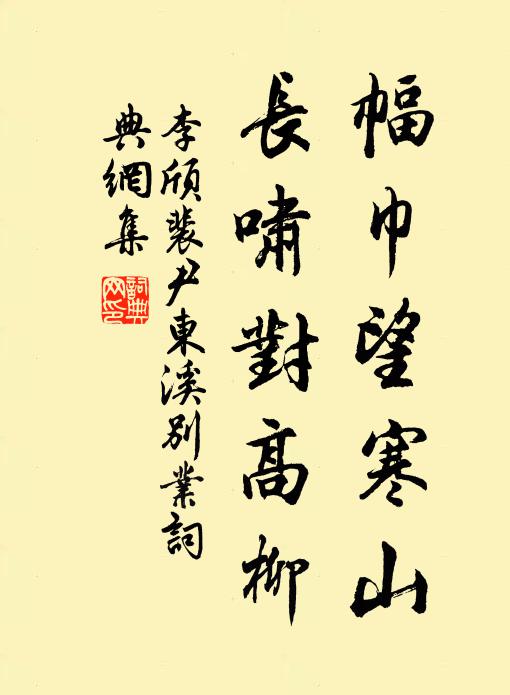 幅巾望寒山
長嘯對高柳
李頎裴尹東溪別業詞
典網集
詞典
网印